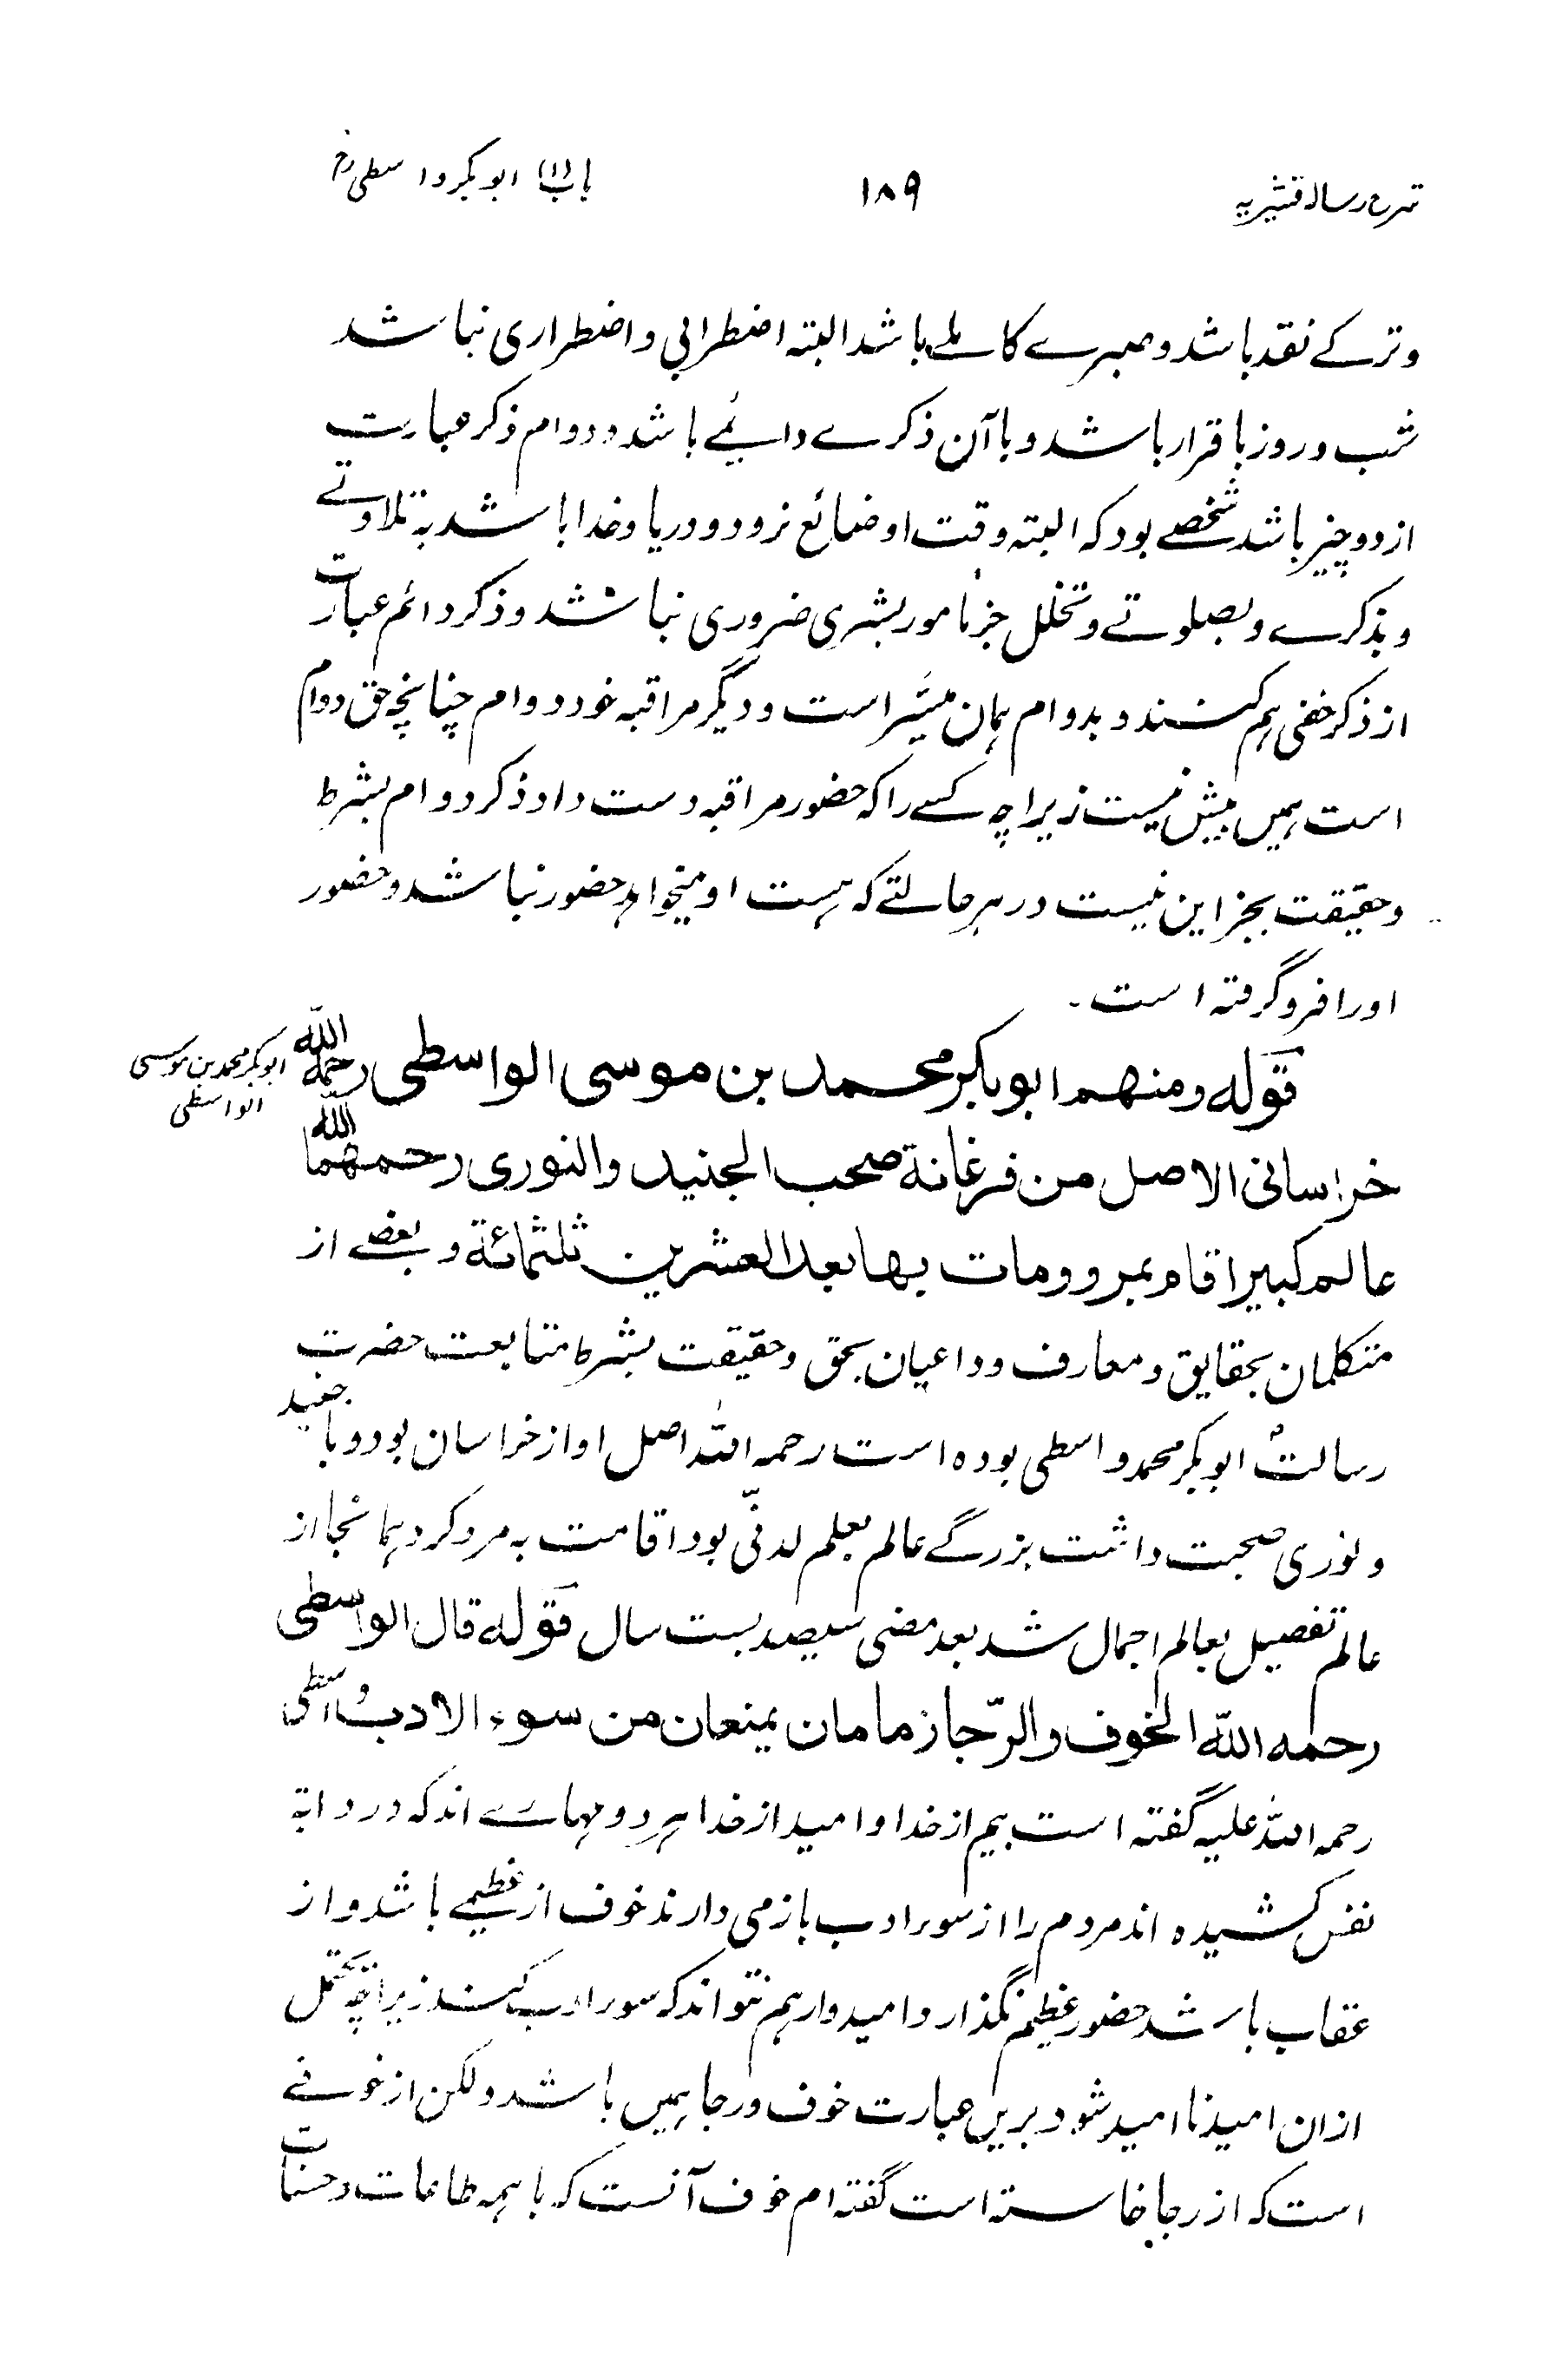 شرح رسالہ قشیریہ
۱۸۹
باب (۱) ابو بکر واسطی رح
وترکے نقد باشد وصبرے کاملے باشد البتہ اضطرابی و اضطراری نباشد
شب و روز با قرار باشد و با آن ذکرے دایمے باشد و دوام ذکر عبارت
از دو چیز باشد شخصے بود کہ البتہ وقت او ضائع نرود و در یاد خدا باشد بہ تلاوتے
و بذکرے و بصلوتے و تخلل جز بامور بشری ضروری نباشد و ذکر دائم عبارت
از ذکر خفی ہم کنند و بدوام ہمان میسر است و دیگر مراقبہ خود دوام چنانچہ حق دوام
است ہمیں بیش نیست زیراچہ کسے را کہ حضور مراقبہ دست داد ذکر دوام بشرط
وحقیقت بجز این نیست در ہر حالتے کہ ہست او میخواہد حضور نباشد و حضور
اورا فرو گرفتہ است ۔
قولہ ومنہم ابوبکر محمد بن موسی الواسطی رحمہ اللہ
ابوبکر محمد بن موسی
الواسطی
خراسانی الاصل من فرغانة صحب الجنید والنوری رحمہما اللہ
عالم کبیر اقام بمرو ومات بہا بعد العشرین ثلثمائة و بعضے از
متکلمان بحقایق و معارف و داعیان بحق و حقیقت بشرط متابعت حضرت
رسالت ابوبکر محمد واسطی بوده است رحمہ اللہ اصل او از خراسان بود و با جنید
و نوری صحبت داشت بزرگے عالم بعلم لدنّی بود اقامت بہ مرو کرد ہمانجا از
عالم تفصیل بعالم اجمال شد بعد مضی سیصد بست سال قولہ قال الواسطی
رحمہ اللہ الخوف والرّجا زمامان یمنعان من سوء الادب واسطی
رحمہ اللہ علیہ گفتہ است بیم از خدا و امید از خدا ہر دو مہارے اند کہ در دابہ
نفس کشیده اند مردم را از سوء ادب باز می دارند خوف از عظیمے باشد و از
عقاب باشد حضور عظیم نگذارد امیدوار ہم نتواند کہ سوء ادب کند زیراچہ محتمل
ازان امید نا امید شود بریں عبارت خوف و رجا ہمیں باشد ولکن از خوفے
است کہ از رجا خاستہ است گفتہ ام خوف آنست کہ با ہمہ طاعات و حسنات